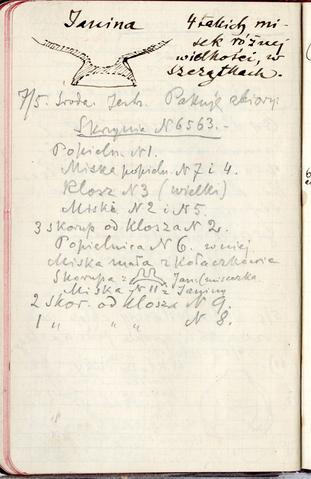 Janina
4 takich mi-
sek różnej
wielkości, w
szczątkach.
7/5. Środa. Pakuję zbiory:
Skrzynia N 6563.-
Popieln. N 1.
Miska popieln. N 7 i 4.
Klosz N 3 (wielki)
Miski N 2 i N 5.
3 skorup od klosza N 2.
Popielnica N 6. w niej
Miska mała z Kołaczkowic
Skorupa z Jan. (miseczka
Miska N 11 z Janiny
2 skor. od klosza N 9.
1 " " " N 8.